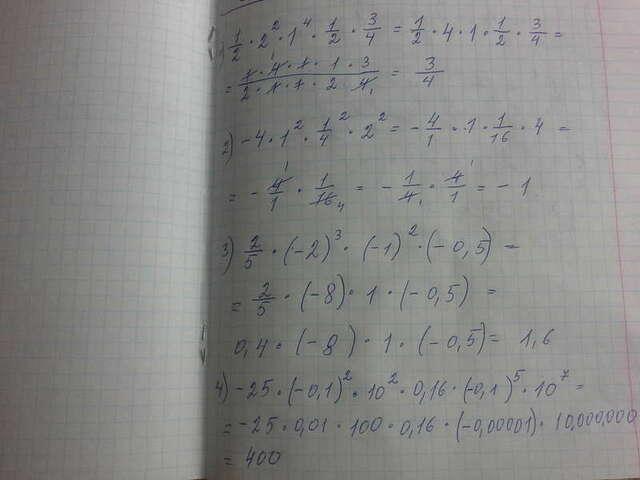 1) 1/2 · 2² · 1⁴ · 1/2 · 3/4 = 1/2 · 4 · 1 · 1/2 · 3/4 =
= 1 · 4 · 1 · 1 · 3 / 2 · 1 · 1 · 2 · 4 = 3/4
2) -4 · 1² · 1/4² · 2² = - 4/1 · 1 · 1/16 · 4 =
= - 4/1 · 1/16 = - 1/4 · 4/1 = - 1
3) 2/5 · (-2)³ · (-1)² · (-0,5) =
= 2/5 · (-8) · 1 · (-0,5) =
0,4 · (-8) · 1 · (-0,5) = 1,6
4) -25 · (-0,1)² · 10² · 0,16 · (-0,1)⁵ · 10⁷ =
= -25 · 0,01 · 100 · 0,16 · (-0,00001) · 10,000,000
= 400